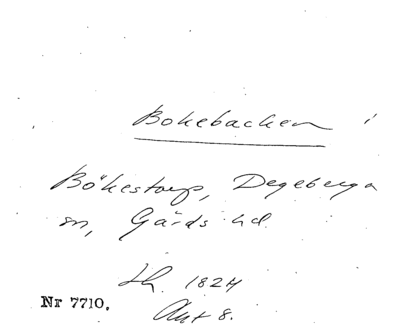 Bokebacken i
Bökestorp, Degeberga
sn, Gärds hd.
Lh. 1824
Akt 8.
Nr 7710.